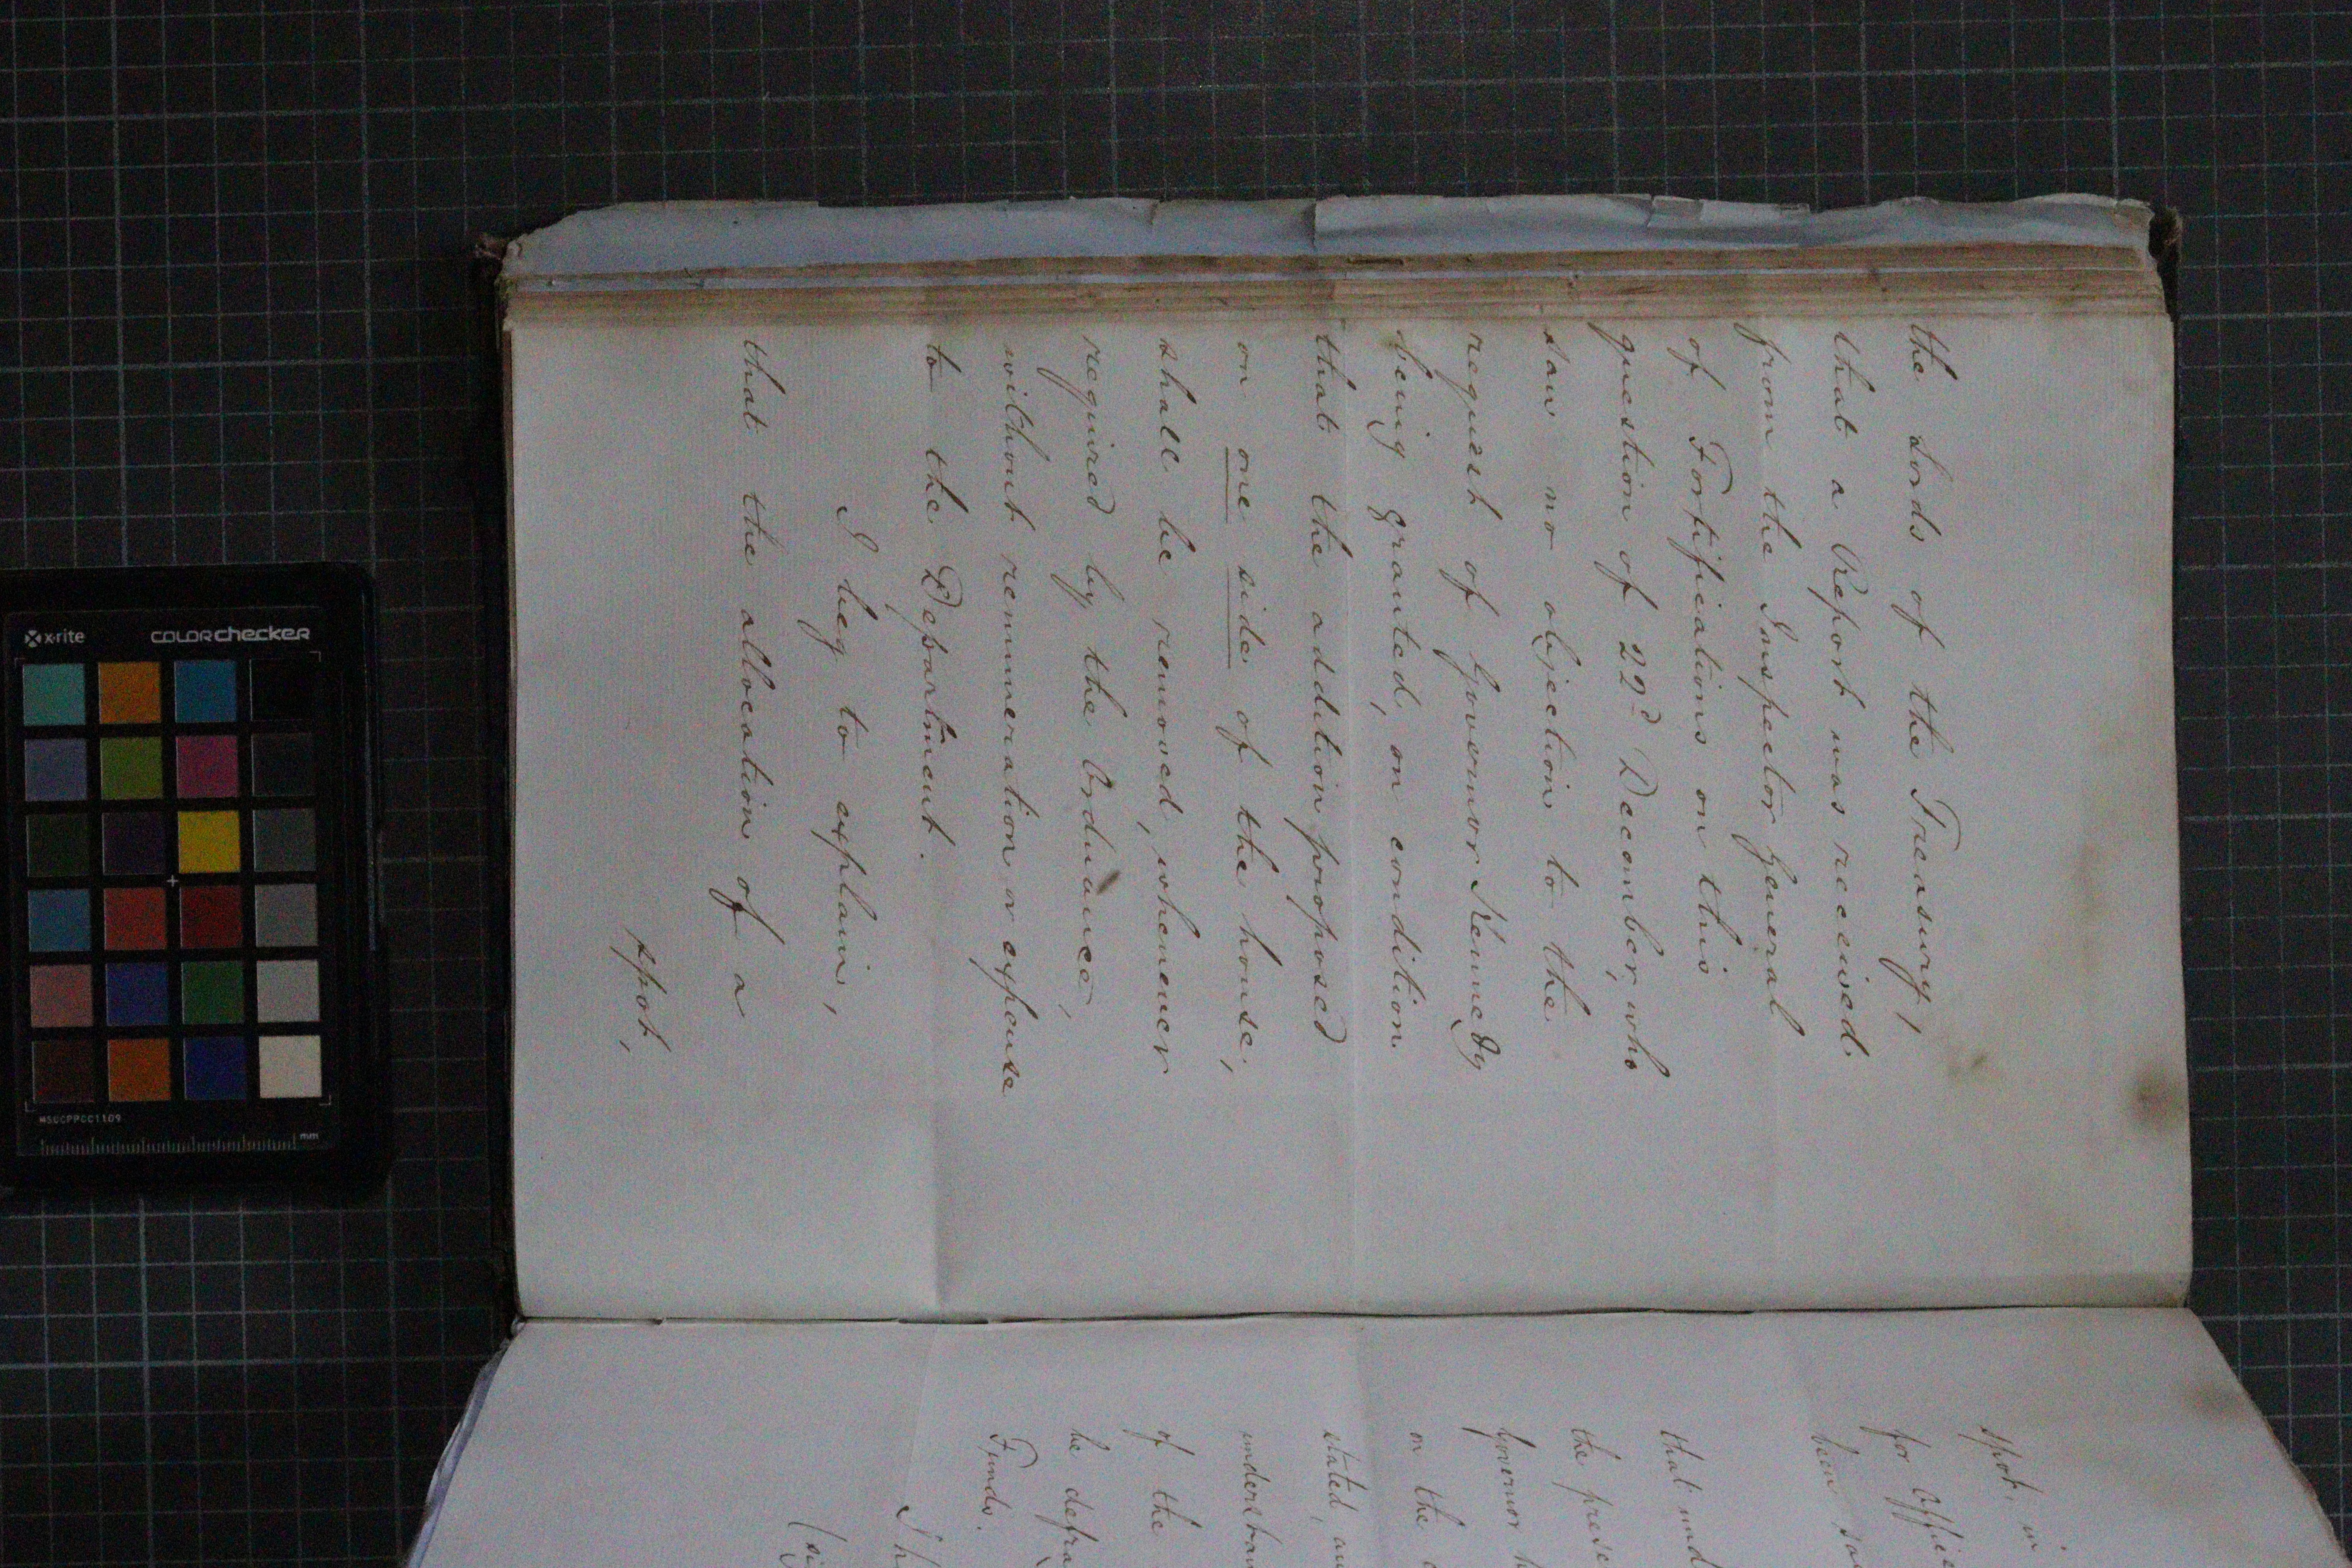 the Lords of the Treasury,
that a Report was received
from the Inspector General
of Fortifications on this
question of 22d December, who
saw no objection to the
request of Governor Kennedy
being granted, on condition
that the addition proposed
on one side of the house,
shall be removed, whenever
required by the Ordnance,
without remuneration or expense
to the Department.
I beg to explain,
that the allocation of a
spot,
spot, in
for Office
been
that und
the prese
Governor h
on the
stated, an
understan
of the
be defra
Funds.
I h
(si
x-rite colorchecker
MSCCPPCC1109
mm